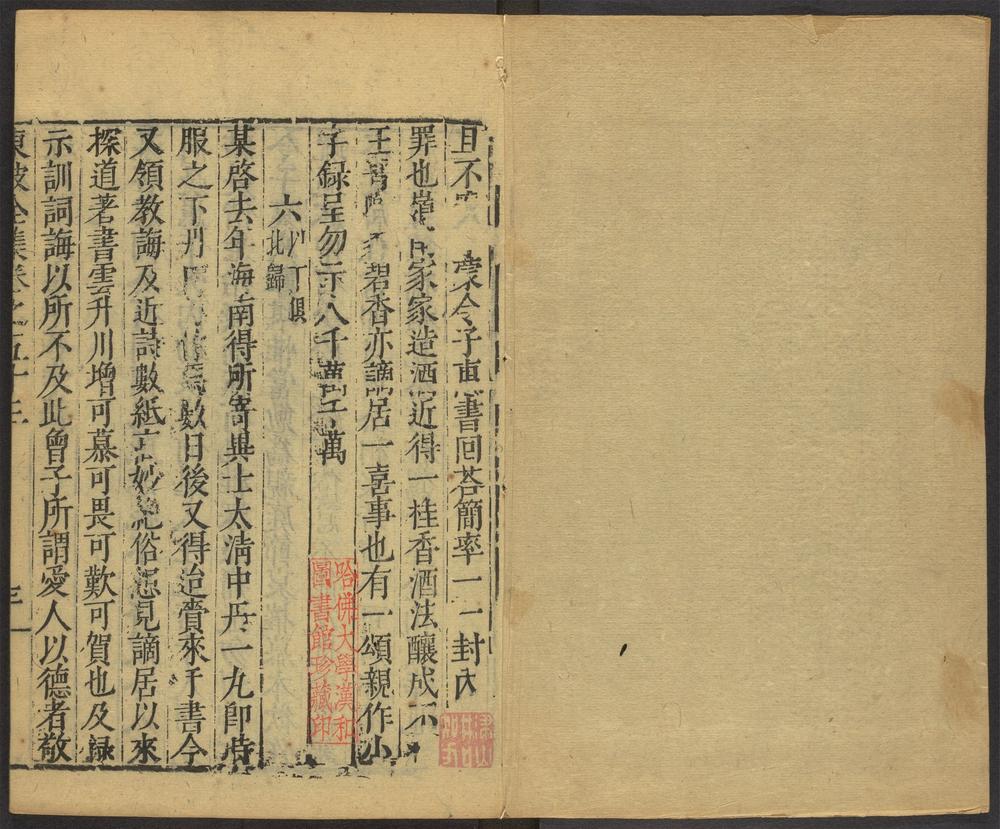 且不 蒙令子直書回答簡率一一封內
罪也嶺家家造酒近得一桂香酒法釀成不
王晉碧香亦謫居一喜事也有一頌親作小
字録呈勿示人千萬千萬
六以下俱
北歸
某啓去年海南得所寄異士太淸中丹一丸卽時
服之下丹田焉數日後又得迨賫來手書今
又領敎誨及近詩數紙高妙絶俗想見謫居以來
探道著書雲升川增可慕可畏可歎可賀也及録
示訓詞誨以所不及此曾子所謂愛人以德者敬
東坡全集卷之五十三
哈佛大學漢和
圖書館珍藏印